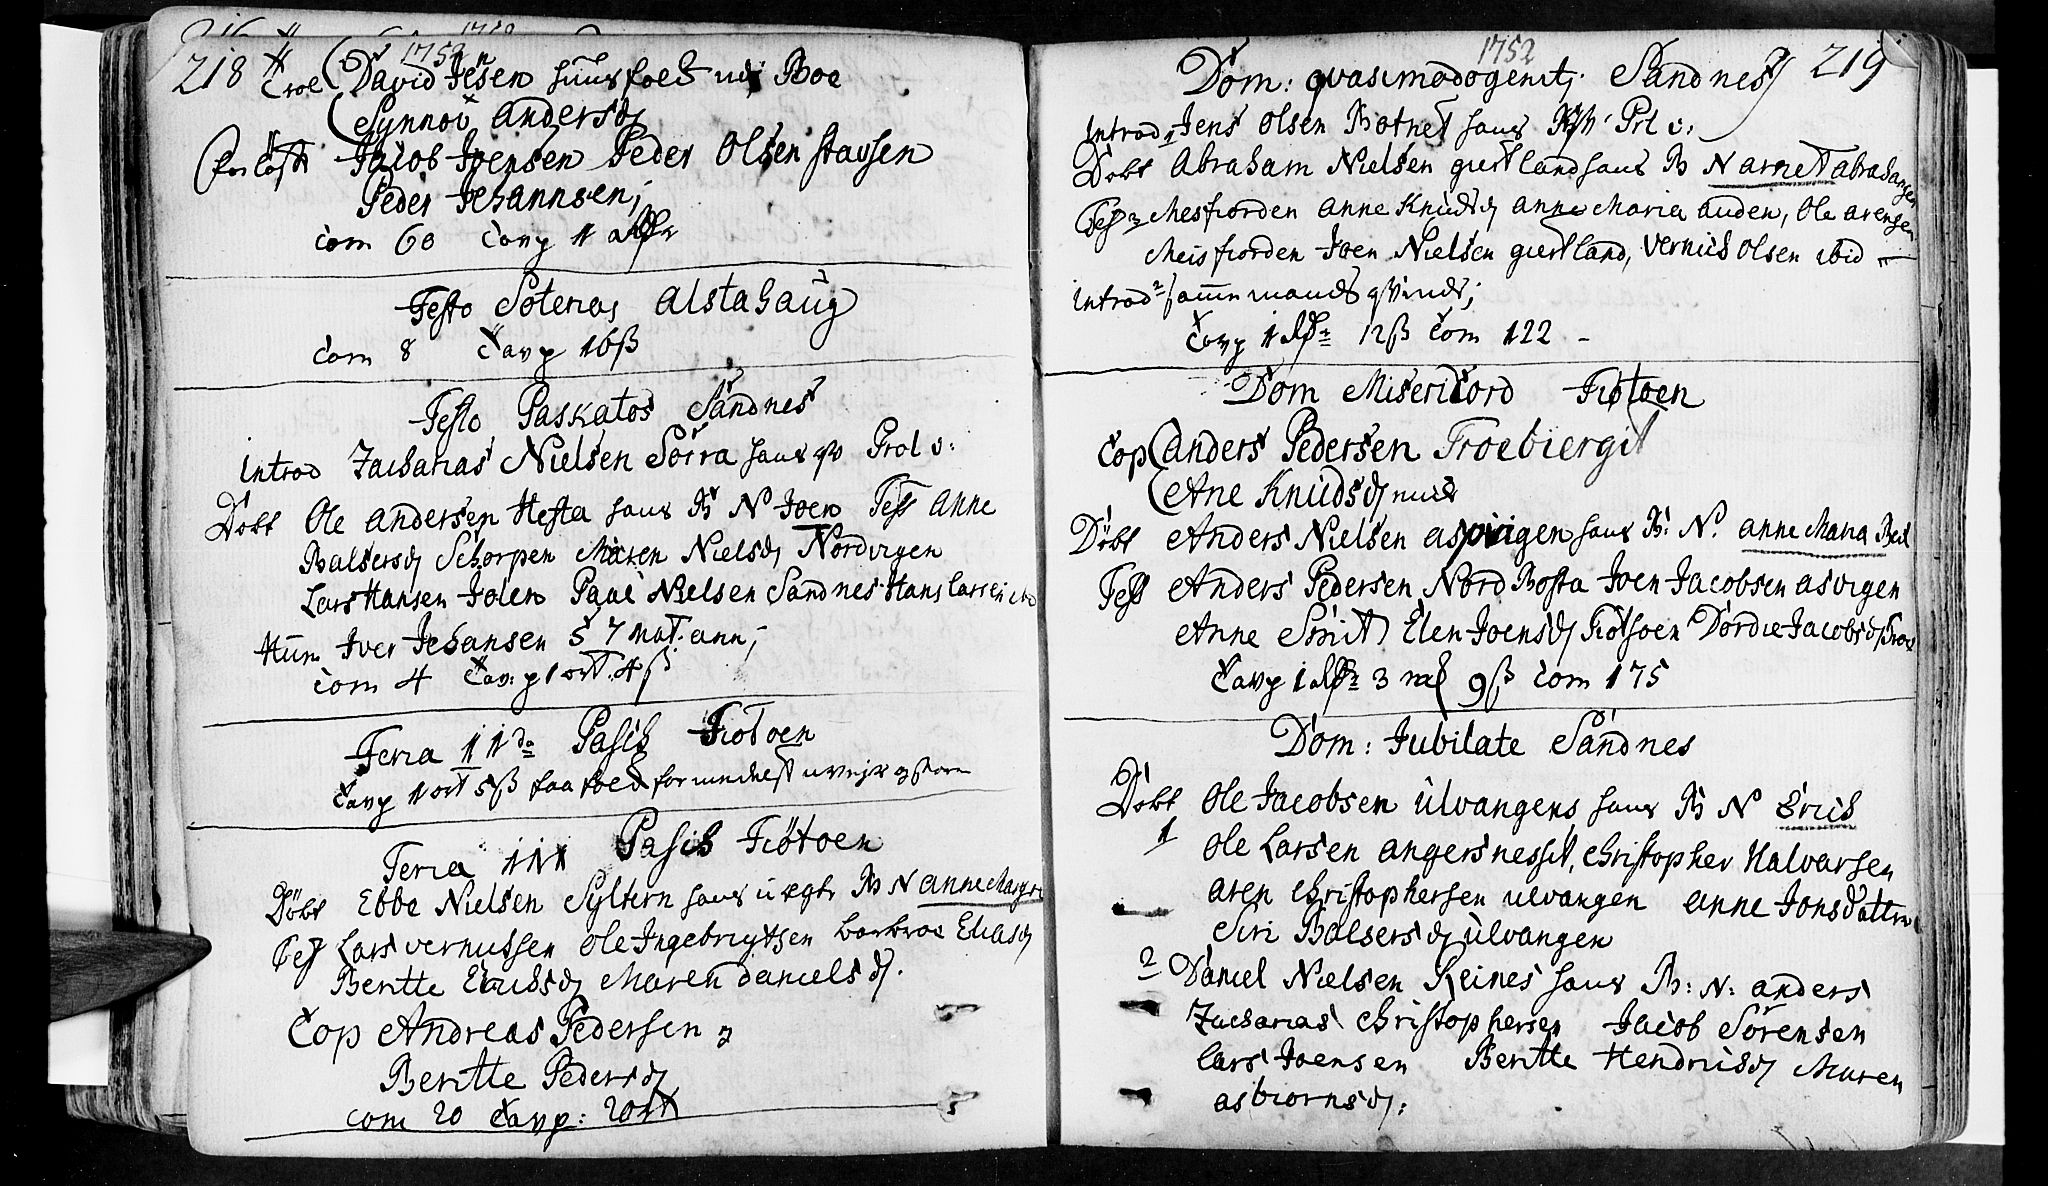 218 1752
Croe (David Jensen huusfoed udi Boe
(Synnoi Andersd
Forløst Jacob Joensen Peder Olsen stavsen
Peder Johannsen;
com 60 Cavp 1
Festo Soterias Alstahaug
Com 8 Cavp 16ß
Festo Paskatos Sandnes
Introd Zacharias Nielsen Sørra hans qv Prol v:
Døbt Ole Andersen Hesta hans B N Joen Tess Anne
Balsersd Schorpen Maren Nielsd Nordvigen
Lars Hansen Jolen Paul Nielsen Sandnes Hans Larsen ibid
Hum Iver Johansen S 7 nat. ann;
Com 4 Cav: p 1 ort. 4ß
Feria 11da Pasch Fiøtoen
Cavp 1 ort 5ß faa foed formedelst uvejr og storm
Feria 111 Pasch Fiøtoen
Døbt Ebbe Nielsen Syltern hans u ægte B N Anne Margre
Tes Lars vernussen Ole Ingebrigtsen barbroe Eliasd
Beritte Erichsd Maren Danielsd.
Cop Andreas Pedersen &
Beritte Pedersd
com 20 Cavp: 20
1752 219
Dom: qvasimodogenitj. Sandnes
Introd 1 Jens Olsen Botnet hans Prl v:
Døbt Abraham Nielsen giertland hans B N Arnet Abrahamsen
Tess Mesfiorden Anne Knudsd Anne Maria Auden, Ole Arensen
Meisfiorden Joen Nielsen giertland, Vernich Olsen ibid
Introd 2 samme mands qvinde;
Cavp 1 12ß Com 122 -
Dom Misericord Fiøtoen
Cop (Anders Pedersen Troebiergit
(Ane Knudsd
Døbt Anders Nielsen asvigen hans B: N. Anne Maria Beil
Tess Anders Pedersen Nord Bosta Joen Jacobsen asvigen
Anne Smit) Elen Joensd Fiøtsoen Dordie Jacobsd Troe
Cavp 1 3 9ß Com 175
Dom: Jubilate Sandnes
Døbt Ole Jacobsen Ulvangens hans B N Erich
1 Ole Larsen Angersnesset, Christopher Halvarsen
Aren Christophersen ulvangen Anne Jonsdatter
Siri Balsersd Ulvangen
2 Daniel Nielsen Reines hans B: N: Anders
Zacharias Christophersen Jacob Sørensen
Lars Joensen Beritte Hendrichsd Maren
asbiornsd: